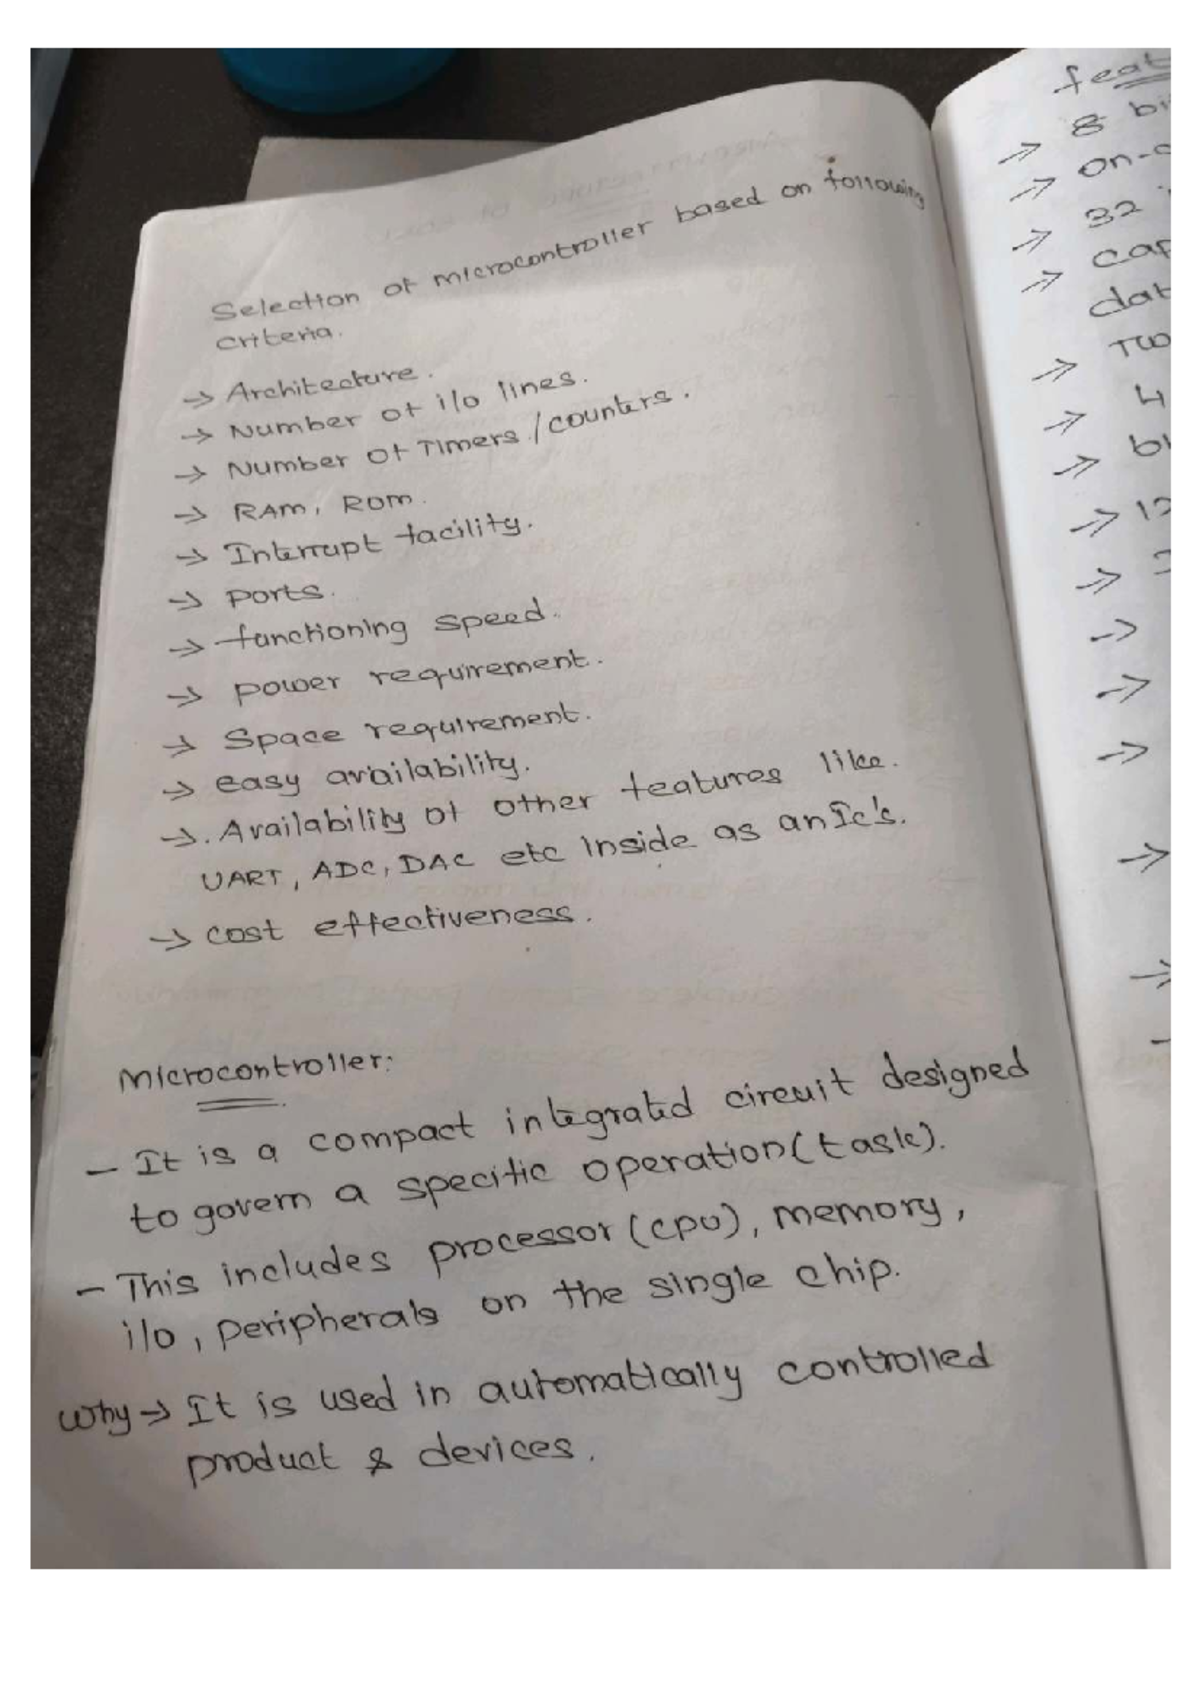 Selection of microcontroller based on following
criteria.
→ Architecture.
→ Number of i/o lines.
→ Number of Timers/counters.
→ RAM, ROM.
→ Interrupt facility.
→ ports.
→ functioning speed.
→ power requirement.
→ Space requirement.
→ easy availability.
→. Availability of other features like.
UART, ADC, DAC etc inside as an Ic's.
→ cost effectiveness.
Microcontroller:
- It is a compact integrated circuit designed
to govern a specific operation(task).
- This includes processor (cpu), memory,
i/o, peripherals on the single chip.
why→ It is used in automatically controlled
product & devices.
feat
→ 8 bi
→ on-c
→ 32
→ cap
dat
→ Two
→ 4
→ bi
→ 12